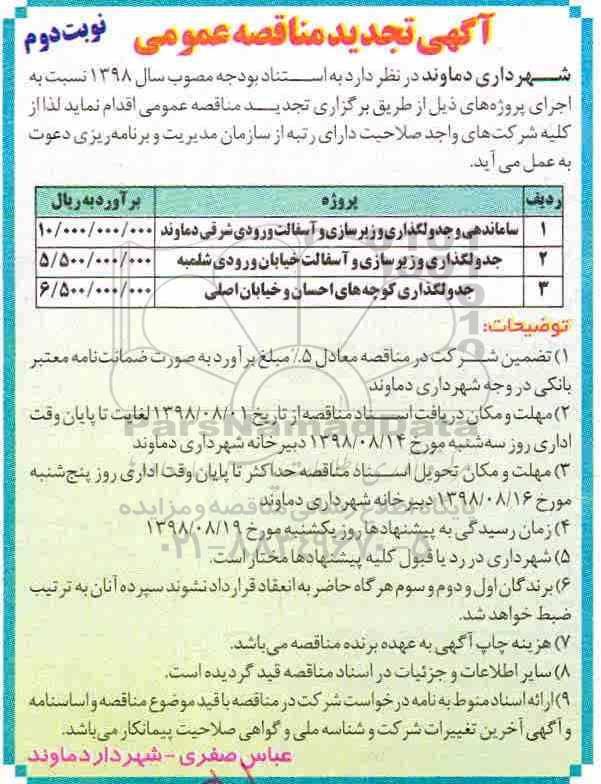 آگهی تجدید مناقصه عمومی
نوبت دوم
شهرداری دماوند در نظر دارد به استناد بودجه مصوب سال ۱۳۹۸ نسبت به
اجرای پروژه‌های ذیل از طریق برگزاری تجدید مناقصه عمومی اقدام نماید لذا از
کلیه شرکت‌های واجد صلاحیت دارای رتبه از سازمان مدیریت و برنامه‌ریزی دعوت
به عمل می آید.
ردیف پروژه برآورد به ریال
۱ ساماندهی و جدولگذاری و زیرسازی و آسفالت ورودی شرقی دماوند ۱۰/۰۰۰/۰۰۰/۰۰۰
۲ جدولگذاری و زیرسازی و آسفالت خیابان ورودی شلمبه ۵/۵۰۰/۰۰۰/۰۰۰
۳ جدولگذاری کوچه های احسان و خیابان اصلی ۶/۵۰۰/۰۰۰/۰۰۰
توضیحات:
۱) تضمین شرکت در مناقصه معادل ۵٪ مبلغ برآورد به صورت ضمانت‌نامه معتبر
بانکی در وجه شهرداری دماوند
۲) مهلت و مکان دریافت اسناد مناقصه از تاریخ ۱۳۹۸/۰۸/۰۱ لغایت تا پایان وقت
اداری روز سه‌شنبه مورخ ۱۳۹۸/۰۸/۱۴ دبیرخانه شهرداری دماوند
۳) مهلت و مکان تحویل اسناد مناقصه حداکثر تا پایان وقت اداری روز پنج‌شنبه
مورخ ۱۳۹۸/۰۸/۱۶ دبیرخانه شهرداری دماوند
۴) زمان رسیدگی به پیشنهادها روز یکشنبه مورخ ۱۳۹۸/۰۸/۱۹
۵) شهرداری در رد یا قبول کلیه پیشنهادها مختار است.
۶) برندگان اول و دوم و سوم هرگاه حاضر به انعقاد قرارداد نشوند سپرده آنان به ترتیب
ضبط خواهد شد.
۷) هزینه چاپ آگهی به عهده برنده مناقصه می‌باشد.
۸) سایر اطلاعات و جزئیات در اسناد مناقصه قید گردیده است.
۹) ارائه اسناد منوط به نامه درخواست شرکت در مناقصه با قید موضوع مناقصه و اساسنامه
و آگهی آخرین تغییرات شرکت و شناسه ملی و گواهی صلاحیت پیمانکار می‌باشد.
عباس صفری - شهردار دماوند
ParsNamadData
پایگاه اطلاع رسانی مناقصه و مزایده